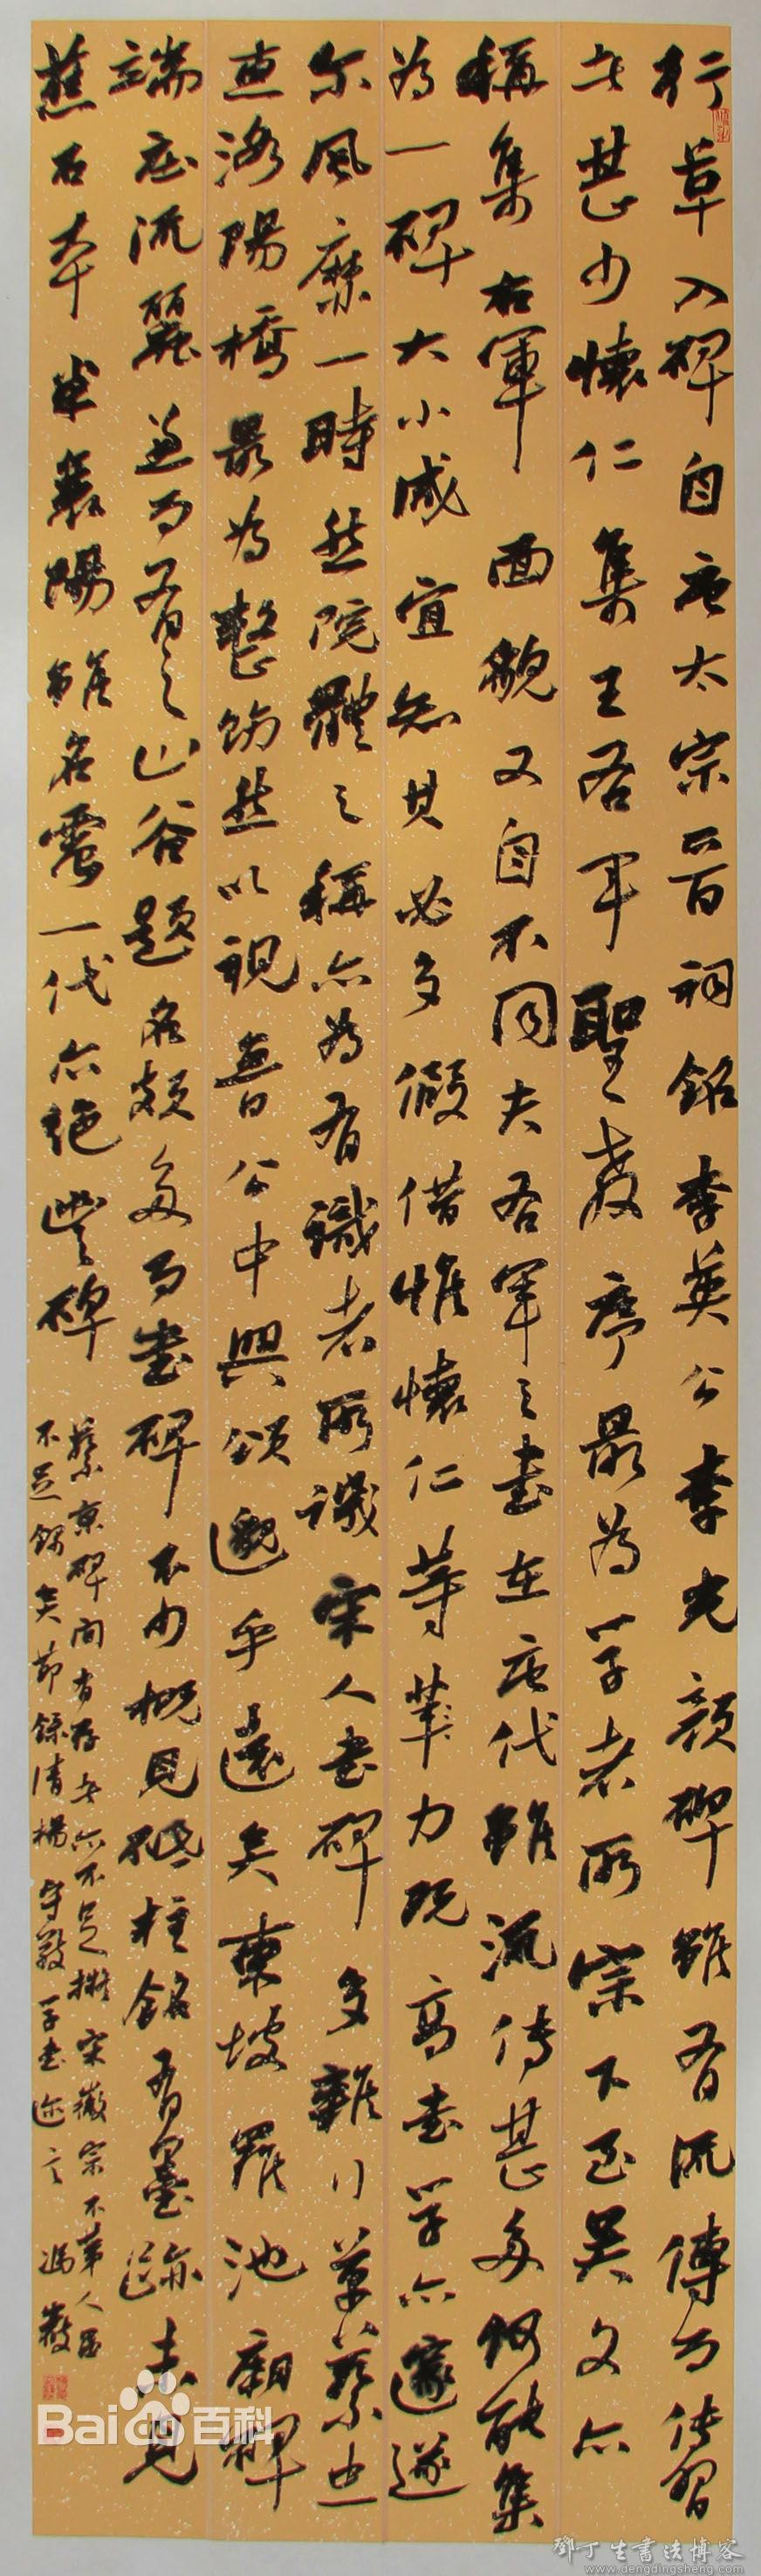 行草入碑自唐太宗晉祠銘李英公李光顏碑雖有流傳而傳習
者甚少懷仁集王右軍聖教序最為學者所宗下至吴文亦
稱集右軍面貌又自不同夫右軍之書在唐代雖流傳甚多何能集
為一碑大小咸宜知其必多假借惟懷仁等筆力既高書學亦邃遂
尔風靡一時然院體之稱亦為有識者所譏宋人書碑多雜行草蔡忠
惠洛陽橋最為整飭然以視魯公中興頌邈乎遠矣東坡羅池廟碑
端庄流麗兼而有之山谷題名頗多而書碑不少概見砥柱銘有墨跡未見
舊石本米襄陽雖名震一代亦絕豐碑
蔡京碑間有存者亦不足擬宋徽宗不第人品
不足錄矣節錄清楊守敬學書迩言 馮
Bai百科
鄧丁生書法博客
www.dengdingsheng.com